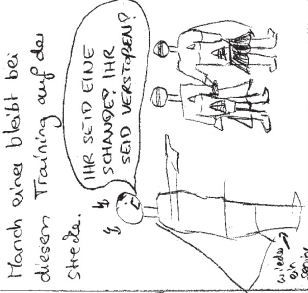 Manch einer bleibt bei
diesem Training auf der
Strecke.
IHR SEID EINE
SCHANDE! IHR
SEID VERSTOßEN!
wieder
ein